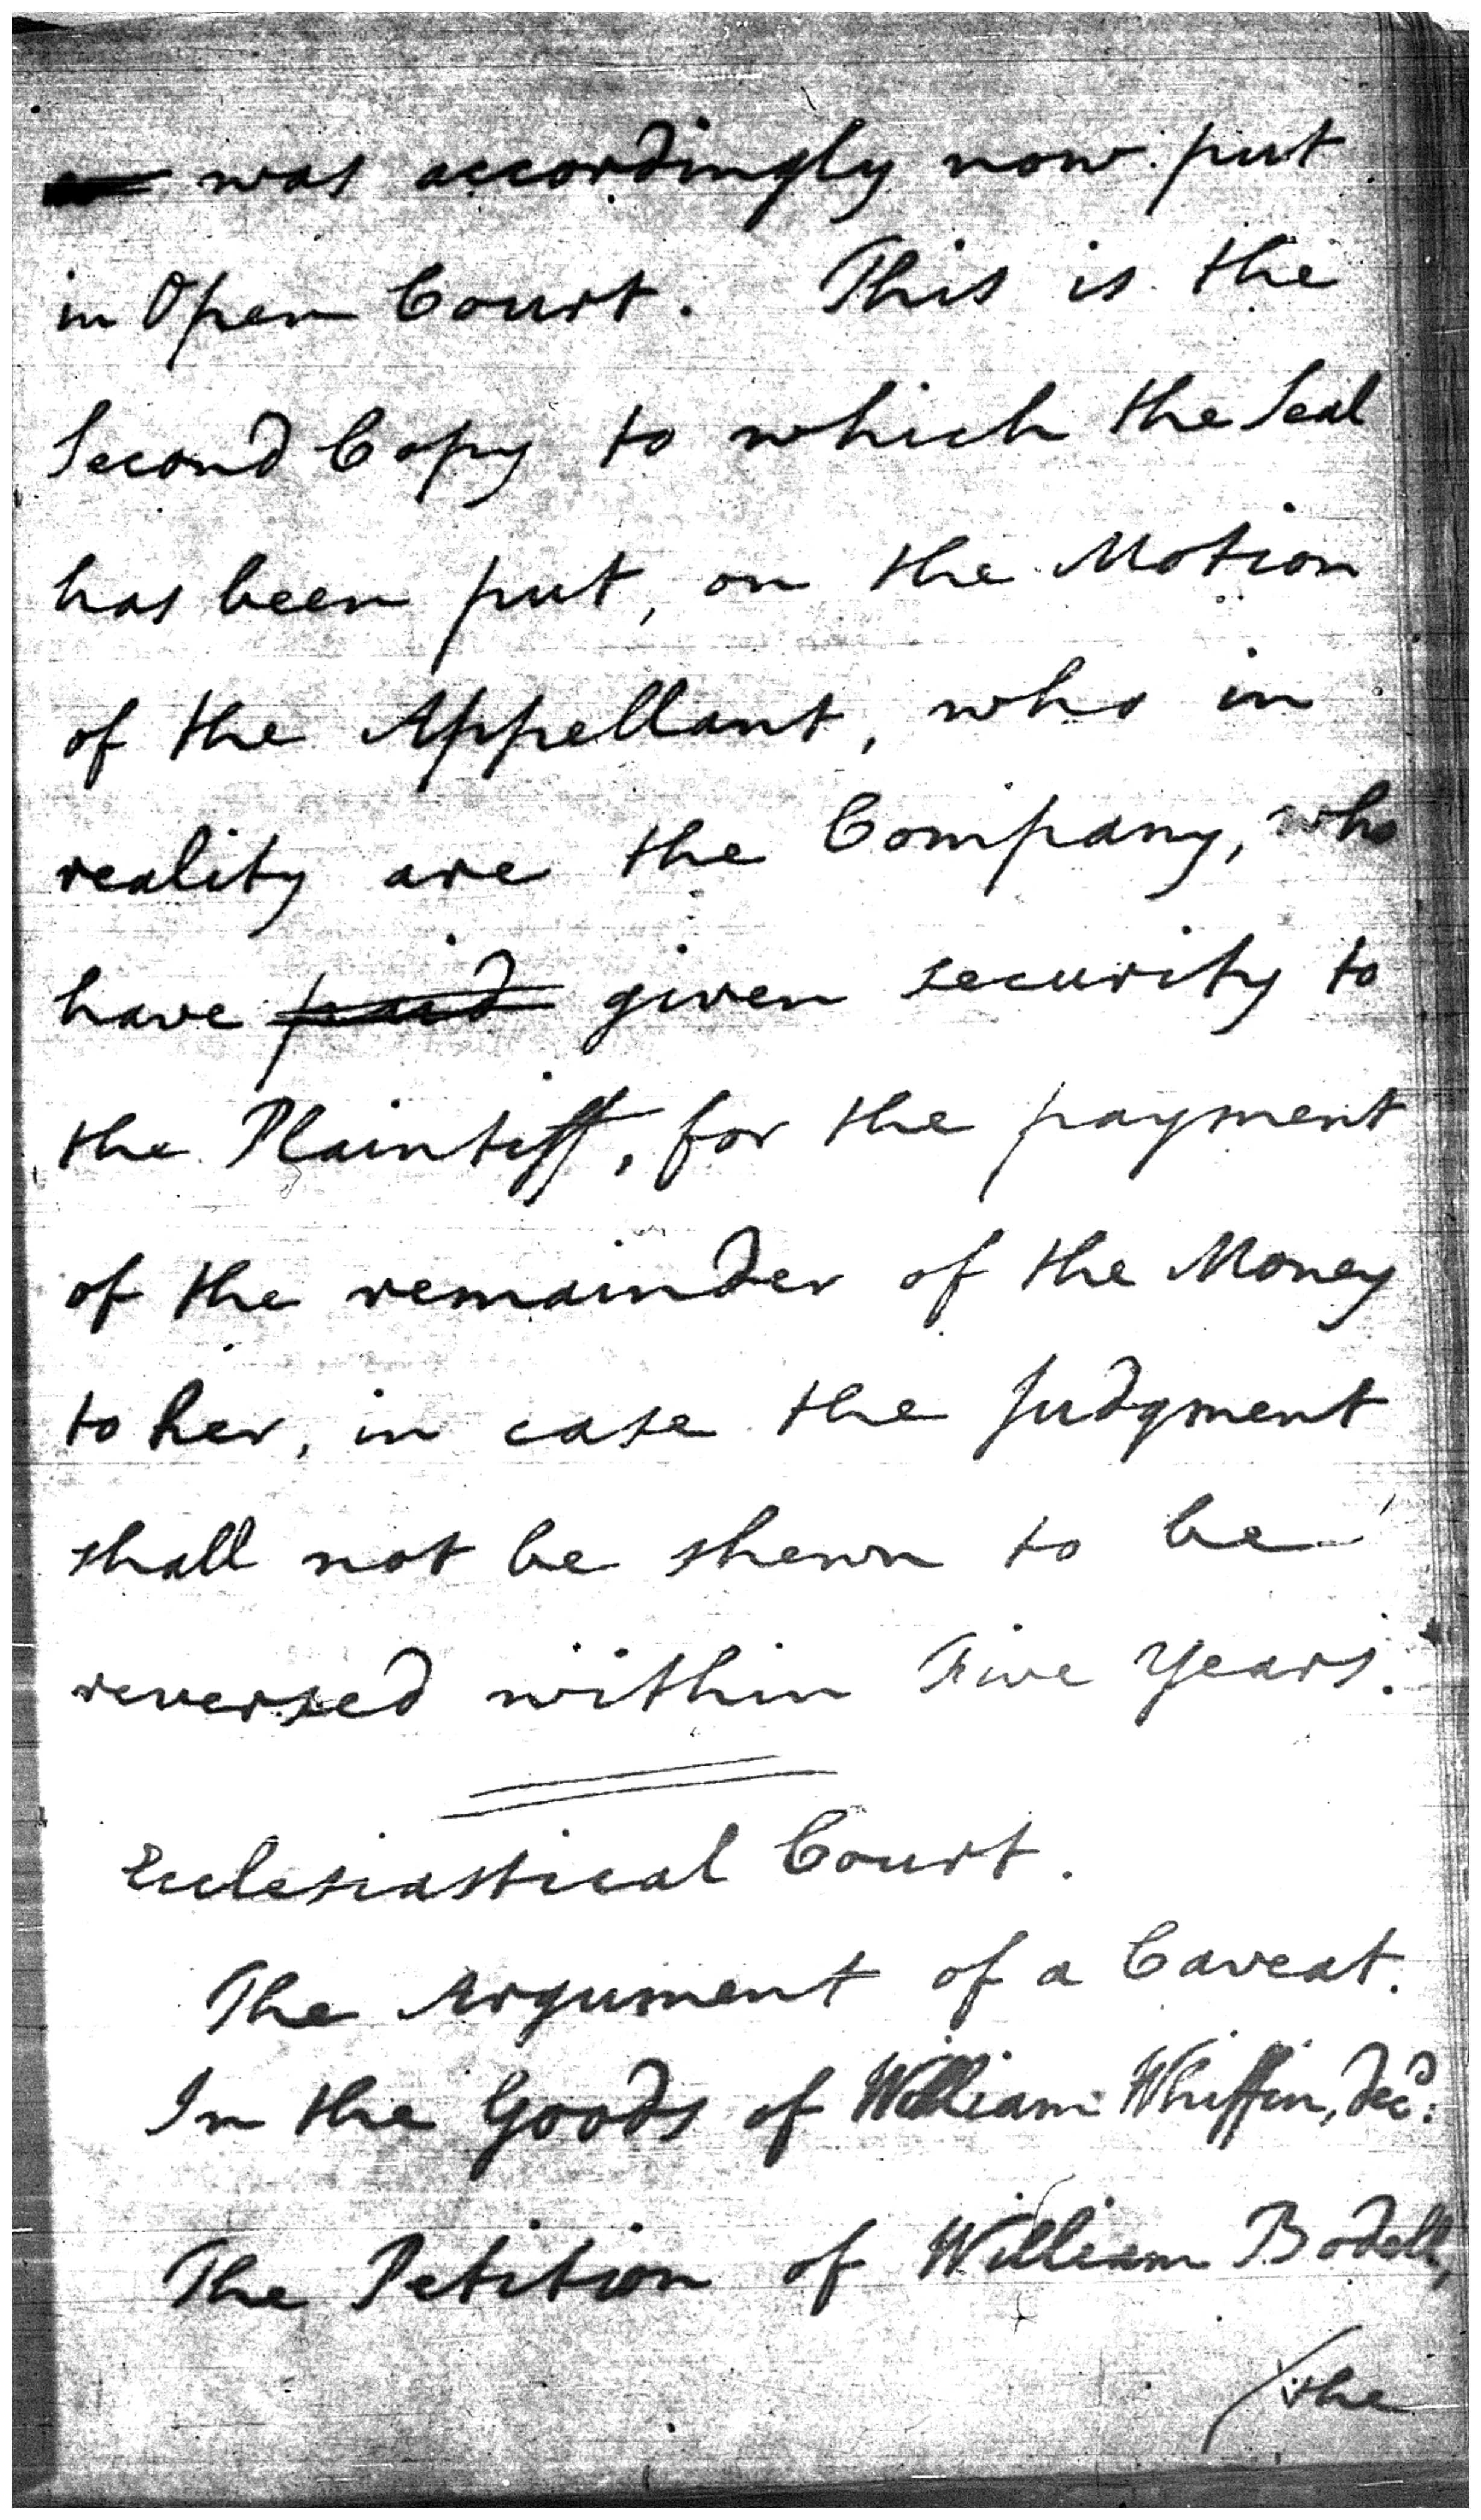 was accordingly now put
in Open Court. This is the
Second Copy to which the Seal
has been put, on the Motion
of the Appellant, who in
reality are the Company, who
have paid given security to
the Plaintiff, for the payment
of the remainder of the Money
to her, in case the Judgment
shall not be shewn to be
reversed within Five Years.
Ecclesiastical Court.
The Argument of a Caveat.
In the Goods of William Whiffin, decd:
The Petition of William Bodell,
the